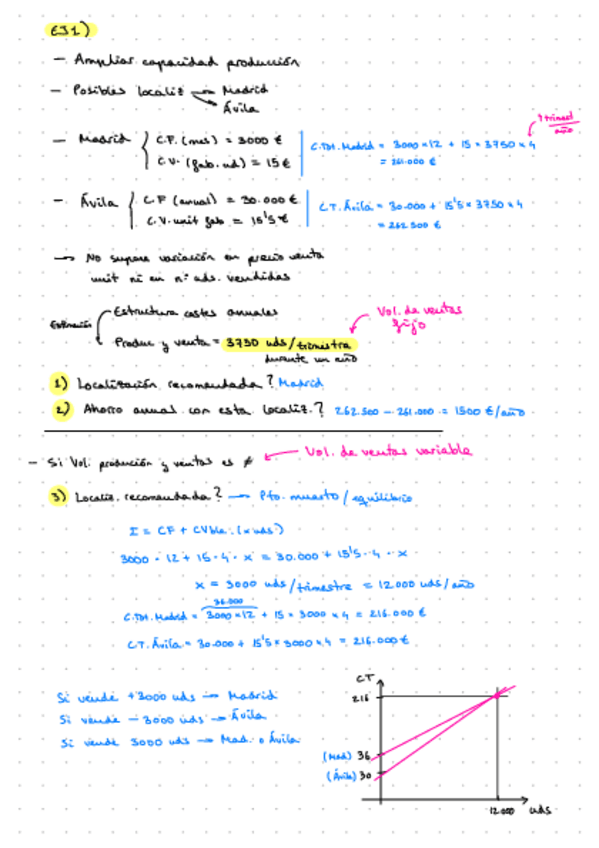 EJ1)
- Ampliar capacidad producción
- Posibles localiz → Madrid
→ Ávila
1 trimest
año
- Madrid { C.F. (mes) = 3000 €
C.V. (fab. ud) = 15 €
C.Tot. Madrid = 3000 × 12 + 15 × 3750 × 4
= 261.000 €
- Ávila { C.F (anual) = 30.000 €
C.V. unit fab = 15'5 €
C.T. Ávila = 30.000 + 15'5 × 3750 × 4
= 262.500 €
→ No supone variación en precio venta
unit ni en nº uds. vendidas
Estimación { Estructura costes anuales
Produc y venta = 3750 uds/trimestre
durante un año
Vol. de ventas
fijo
1) Localización recomendada? Madrid
2) Ahorro anual con esta localiz.? 262.500 - 261.000 = 1500 €/año
- Si Vol. producción y ventas es ≠ ← Vol. de ventas variable
3) Localiz. recomendada? → Pto. muerto / equilibrio
I = CF + CVble. (× uds)
3000 · 12 + 15 · 4 · x = 30.000 + 15'5 · 4 · x
x = 3000 uds/trimestre = 12.000 uds/año
36.000
C.Tot. Madrid = 3000 × 12 + 15 × 3000 × 4 = 216.000 €
C.T. Ávila = 30.000 + 15'5 × 3000 × 4 = 216.000 €
Si vende +3000 uds → Madrid
Si vende - 3000 uds → Ávila
Si vende 3000 uds → Mad. o Ávila
CT
216
(Mad) 36
(Ávila) 30
12.000 uds